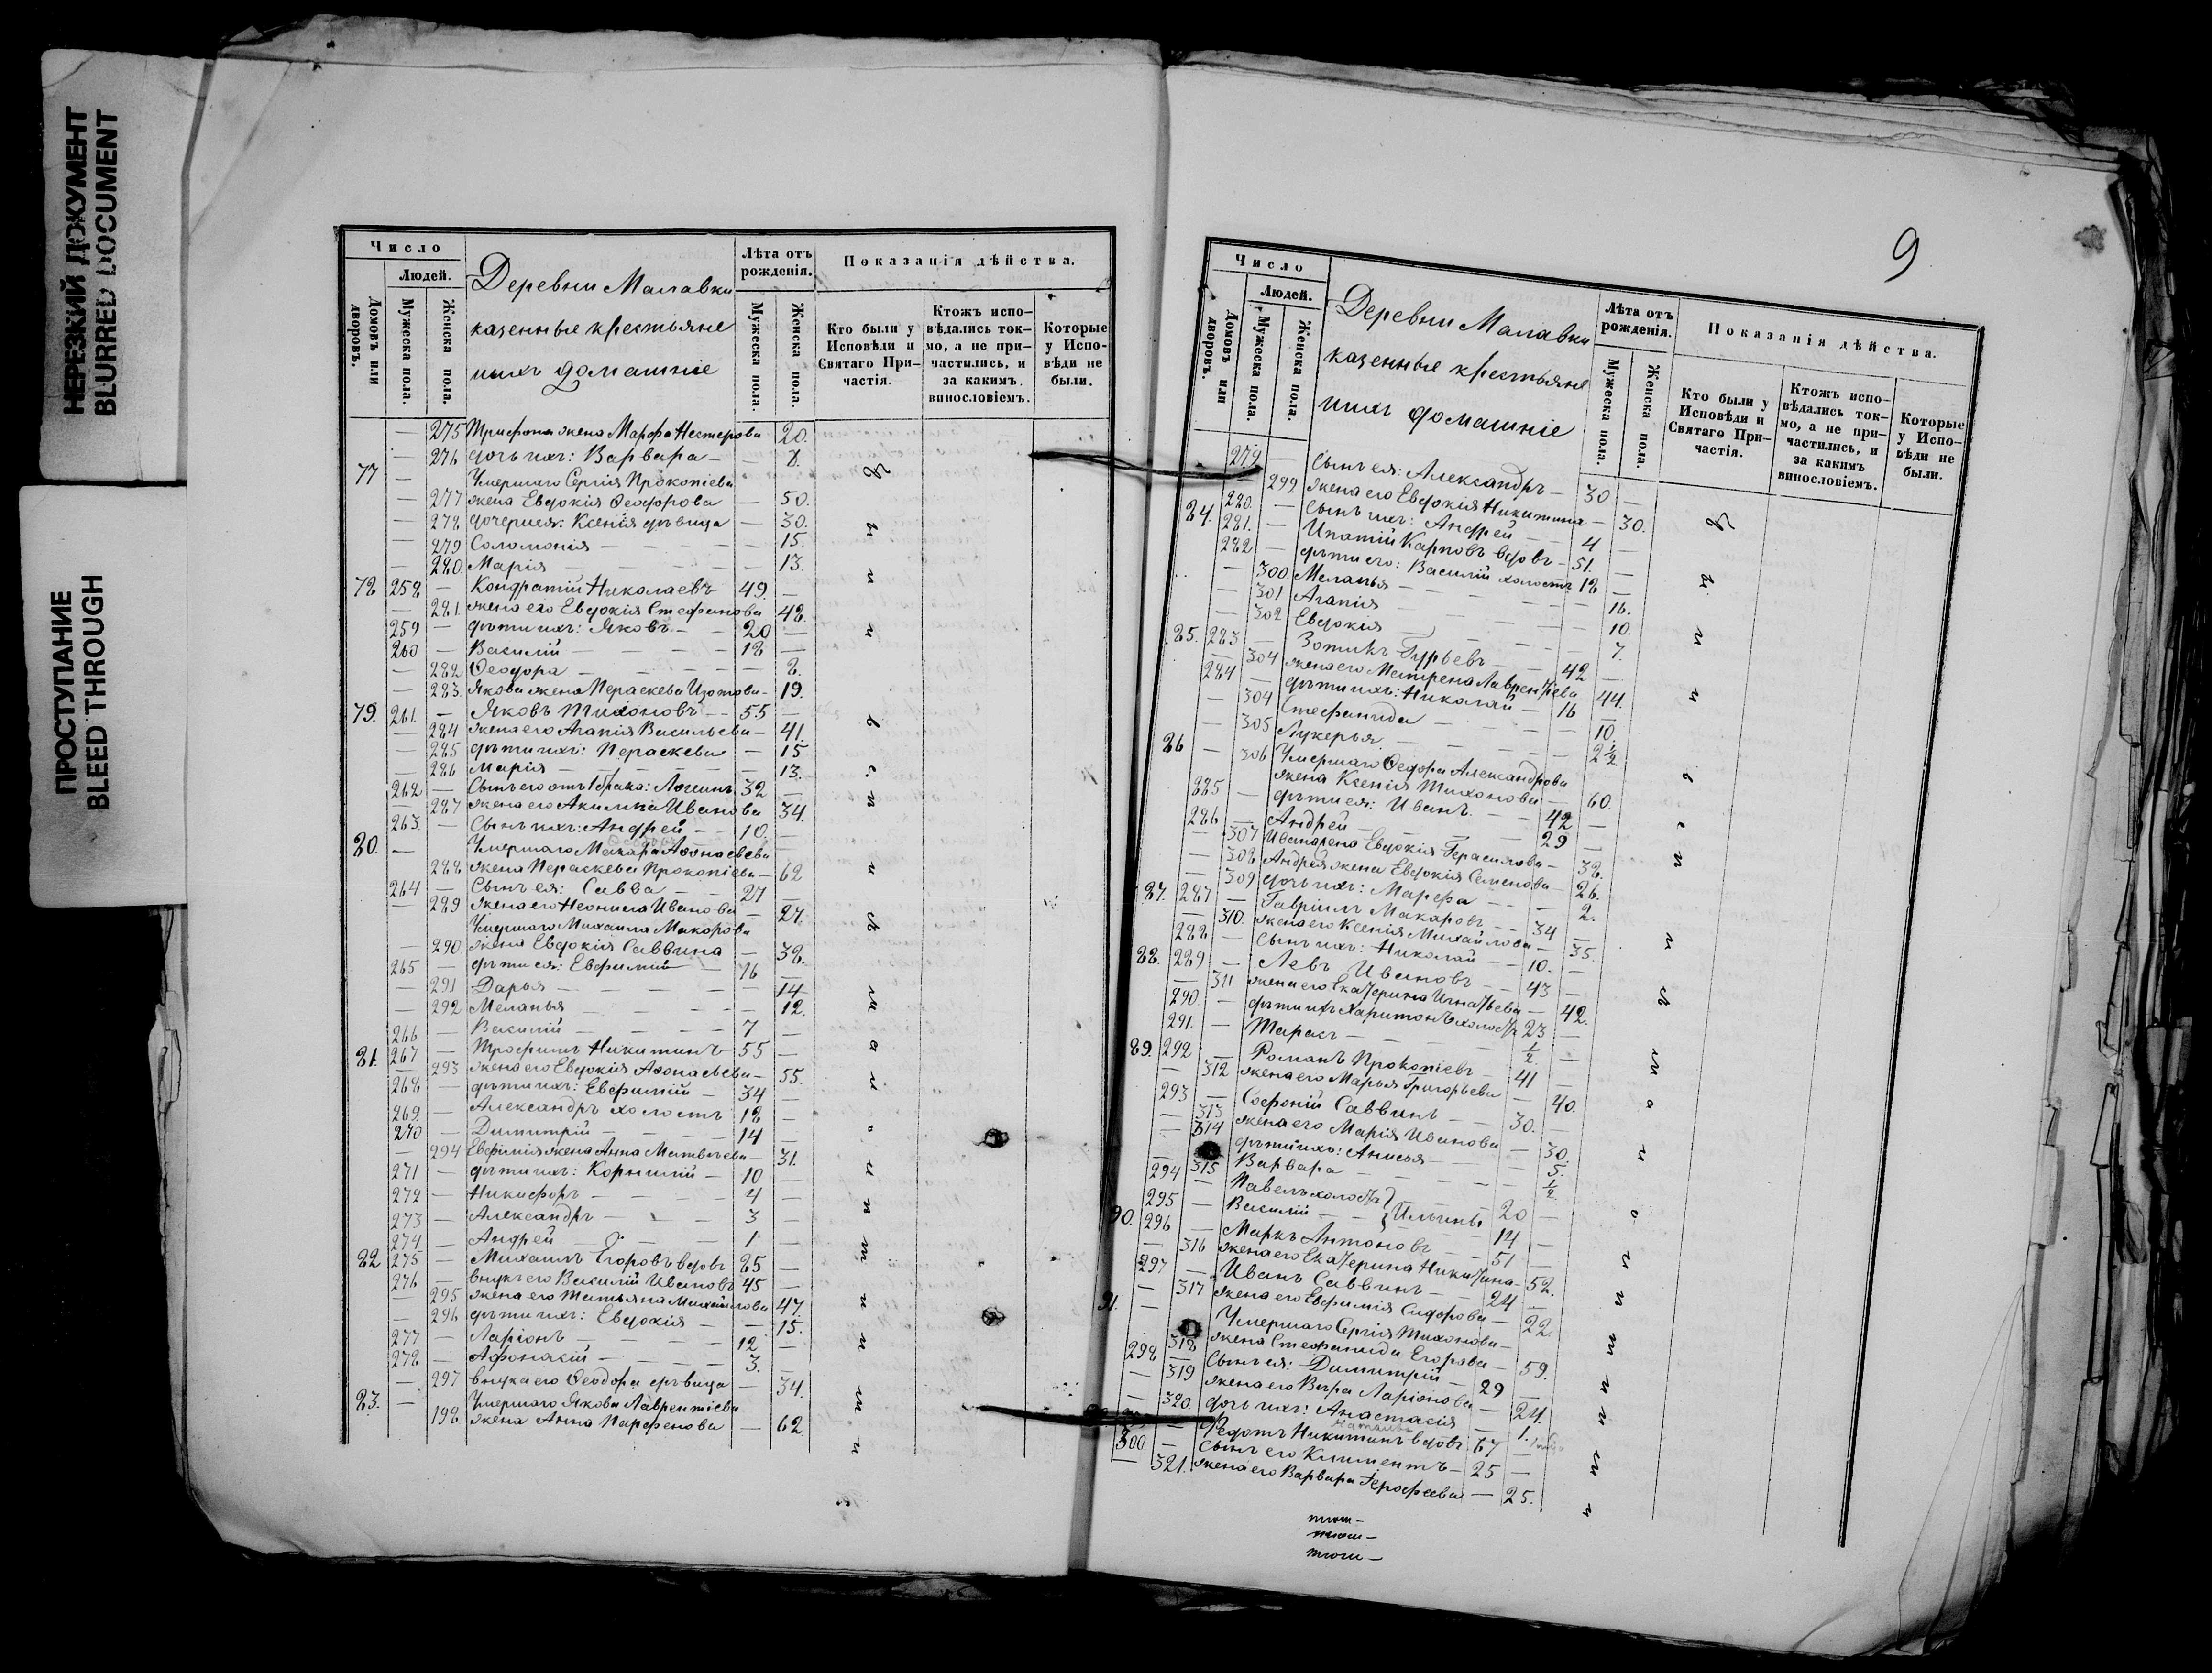 НЕРЕЗКИЙ ДОКУМЕНТ
BLURRED DOCUMENT
ПРОСТУПАНИЕ
BLEED THROUGH
Число
Людей.
Домовъ или дворовъ.
Мужеска пола.
Женска пола.
Деревни Малавки
казенные крестьяне
ихъ домашніе
Лѣта отъ рожденія.
Мужеска пола.
Женска пола.
Показанія дѣйства.
Кто были у Исповѣди и Святаго Причастія.
Ктожъ исповѣдались токмо, а не причастились, и за какимъ винословіемъ.
Которые у Исповѣди не были.
— 275 Трифона жена Марфа Нестерова 20.
— 276 дочь ихъ: Варвара —
77 — Умершаго Сергія Прокопіева
— 277 жена Евдокія Ѳеодорова — 50.
— 278 дочери ея: Ксенія дѣвица — 30.
— 279 Соломонія — 15.
— 280. Марія — 13.
78 258 — Кондратій Николаевъ 49. —
— 281. жена его Евдокія Стефанова 48.
259 — дѣти ихъ: Яковъ — 20 —
260 — Василій — 18 —
— 282 Ѳеодора — 8.
— 283. Якова жена Параскева Изотова — 19.
79. 261. — Яковъ Тихоновъ — 55 —
— 284 жена его Агапія Васильева — 41.
— 285 дѣти ихъ: Параскева — 15
— 286 Марія — 13.
262 — Сынъ его отъ 1 брака: Логинъ 32 —
— 287 жена его Акилина Иванова 34.
263. — Сынъ ихъ: Андрей — 10. —
80. — Умершаго Макара Аѳонасьева
288 жена Параскева Прокопіева — 62
264 — Сынъ ея: Савва — 27 —
— 289 жена его Неонила Иванова — 27.
Умершаго Михаила Макарова
— 290. жена Евдокія Саввина — 38.
265 — дѣти ея: Евфимій — 16 —
— 291 Дарья — 14
— 292 Меланья — 12.
266 — Василій — 7 —
81. 267 — Трофимъ Никитинъ 55 —
— 293 жена его Евдокія Аѳонасьева — 55.
268 — дѣти ихъ: Евфимій — 34 —
269 — Александръ холостъ 18 —
270 — Димитрій — 14 —
— 294 Евфимія жена Анна Матвѣева — 31.
271 — дѣти ихъ: Корнилій — 10 —
272 — Никифоръ — 4 —
273 — Александръ — 3 —
274 — Андрей — 1 —
82 275 — Михаилъ Егоровъ вдовъ 85 —
276 — внукъ его Василій Ивановъ 45 —
— 295 жена его Татьяна Михайлова 47.
— 296 дѣти ихъ: Евдокія — 15.
277 — Ларіонъ — 12 —
278 — Афонасій — 3.
— 297 внука его Ѳеодора дѣвица — 34.
83. — Умершаго Якова Лаврентіева
198 жена Анна Парфенова — 62
9
Число
Людей.
Домовъ или дворовъ.
Мужеска пола.
Женска пола.
Деревни Малавки
казенные крестьяне
ихъ домашніе
Лѣта отъ рожденія.
Мужеска пола.
Женска пола.
Показанія дѣйства.
Кто были у Исповѣди и Святаго Причастія.
Ктожъ исповѣдались токмо, а не причастились, и за какимъ винословіемъ.
Которые у Исповѣди не были.
279 — Сынъ ея: Александръ — 30 —
299 жена его Евдокія Никитина — 30.
280. — Сынъ ихъ: Андрей — 4 —
84. 281. — Ипатій Карповъ вдовъ — 51. —
282 — дѣти его: Василій холостъ 18 —
— 300 Меланья — 16.
— 301 Агапія — 10.
— 302 Евдокія — 7.
85. 283 — Зотикъ Гурьевъ — 42 —
— 304 жена его Матрена Лаврентьева 44.
284 — дѣти ихъ: Николай — 16 —
— 304 Стефанида — 10.
— 305 Лукерья — 2 1/2
86 — Умершаго Ѳедора Александрова
306 жена Ксенія Тихонова — 60.
285 — дѣти ея: Иванъ — 42 —
286 — Андрей — 29 —
— 307 Ивана жена Евдокія Герасимова — 38.
— 308 Андрея жена Евдокія Семенова — 26.
— 309 дочь ихъ: Марфа — 2.
87. 287 — Гавріилъ Макаровъ — 34 —
— 310. жена его Ксенія Михайлова — 35.
288 — Сынъ ихъ: Николай — 10. —
88. 289 — Левъ Ивановъ — 43 —
— 311 жена его Екатерина Игнатьева — 42.
290 — дѣти ихъ Харитонъ холостъ 23 —
291. — Тарасъ — 1/2 —
89. 292 — Романъ Прокопіевъ — 41 —
— 312 жена его Марья Григорьева — 40.
293 — Софоній Саввинъ — 30. —
— 313 жена его Марія Иванова — 30.
— 314 дѣти ихъ: Анисья — 5.
— 315 Варвара — 1/2.
294 — Павелъ холостъ } Ильины 20 —
295 — Василій — 14 —
90. 296 — Маркъ Антоновъ — 51 —
— 316 жена его Екатерина Никитина — 52.
297 — Иванъ Саввинъ — 24 —
— 317 жена его Евфимія Сидорова — 22.
91. — Умершаго Сергія Тихонова —
318 жена Стефанида Егорова — 59.
298 — Сынъ ея: Димитрій — 29 —
— 319 жена его Вѣра Ларіонова — 24.
— 320 дочь ихъ: Анастасія — 1.
— Ѳедотъ Никитинъ вдовъ 67 —
300 — Сынъ его Климентъ — 25 —
— 321. жена его Варвара Герофеева — 25.